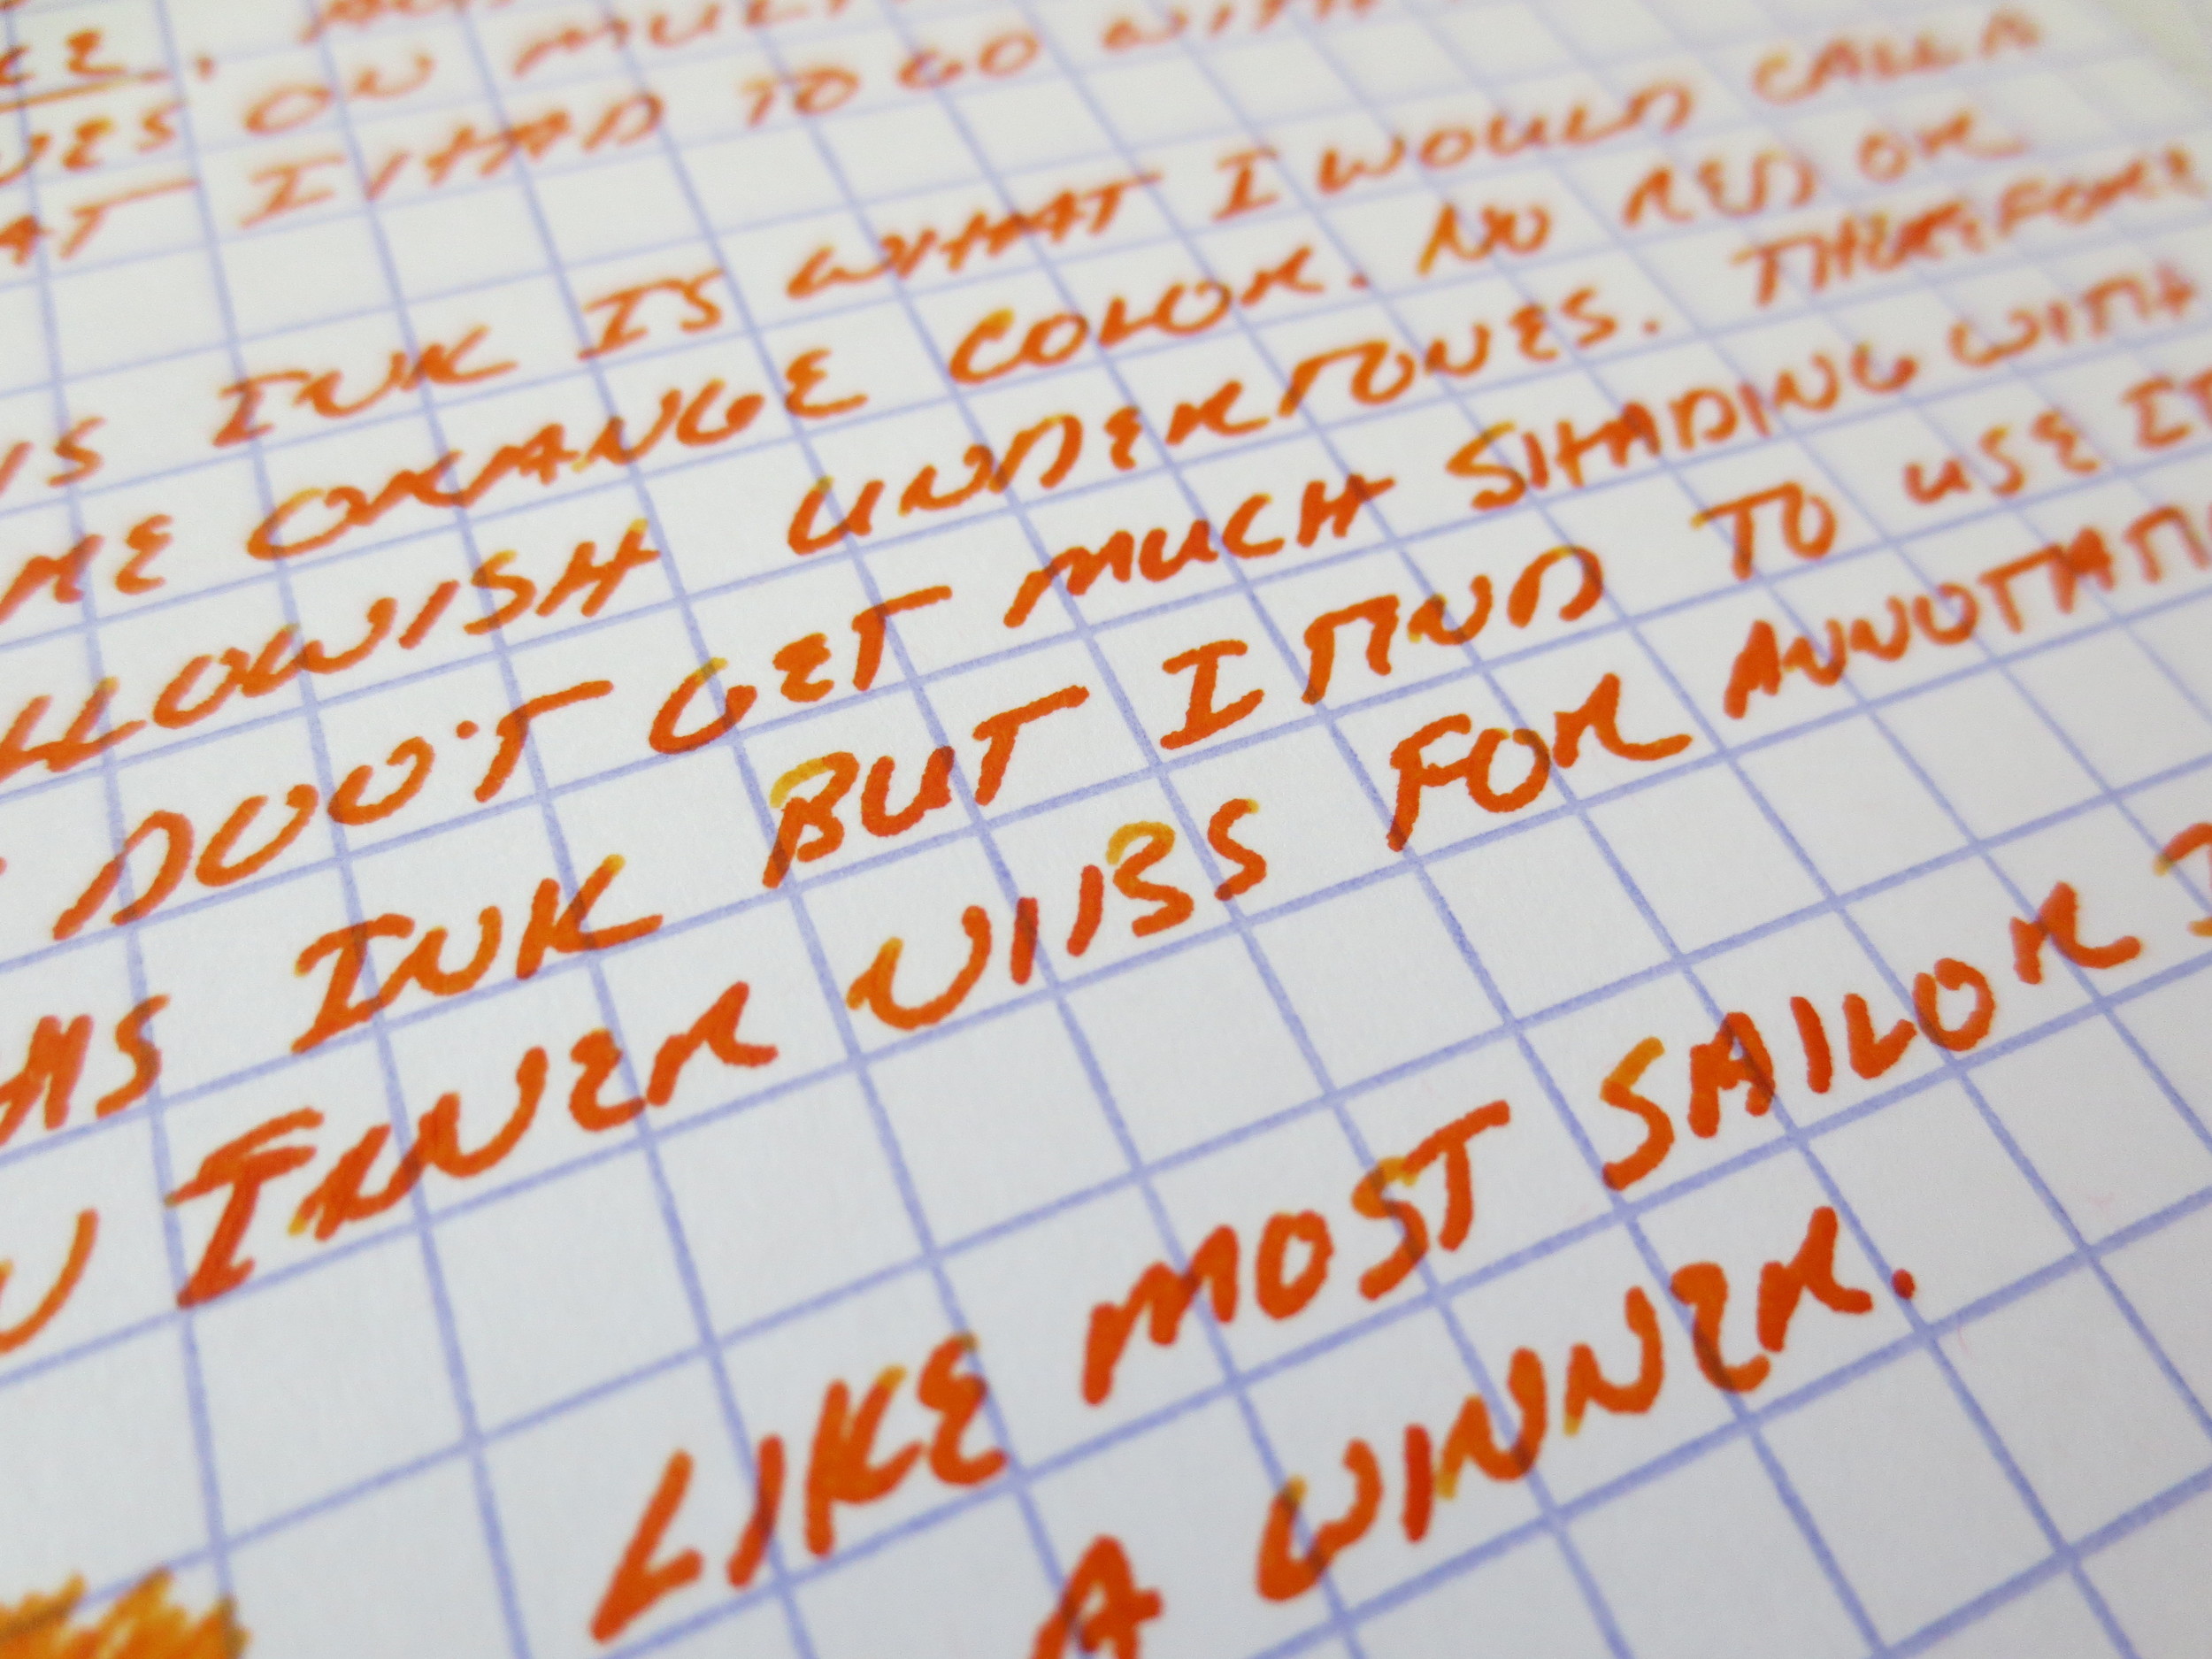 ON MULTI
AT I HAD TO GO WITH
IS INK IS WHAT I WOULD CALL A
ME ORANGE COLOR. NO RED OR
LLOWISH UNDERTONES. THEREFORE
DON'T GET MUCH SHADING WITH
HIS INK BUT I TEND TO USE IT
N FINER NIBS FOR ANNOTATI
LIKE MOST SAILOR I
A WINNER.